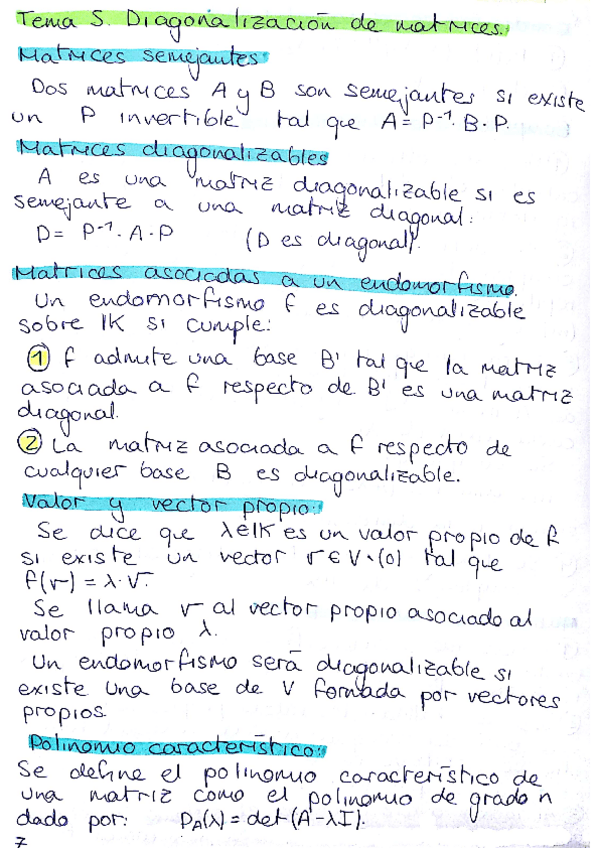 Tema 5. Diagonalización de matrices.
Matrices semejantes:
Dos matrices A y B son semejantes si existe
un P invertible tal que A = P⁻¹. B. P.
Matrices diagonalizables
A es una matriz diagonalizable si es
semejante a una matriz diagonal:
D = P⁻¹. A. P (D es diagonal).
Matrices asociadas a un endomorfismo.
Un endomorfismo f es diagonalizable
sobre IK si cumple:
1 f admite una base B' tal que la matriz
asociada a f respecto de B' es una matriz
diagonal.
2 La matriz asociada a f respecto de
cualquier base B es diagonalizable.
Valor y vector propio:
Se dice que λ∈IK es un valor propio de f
si existe un vector v ∈ V\{0} tal que
f(v) = λ. v.
Se llama v al vector propio asociado al
valor propio λ.
Un endomorfismo será diagonalizable si
existe una base de V formada por vectores
propios.
Polinomio característico:
Se define el polinomio característico de
una matriz como el polinomio de grado n
dado por: P_A(λ) = det (A-λI).
7